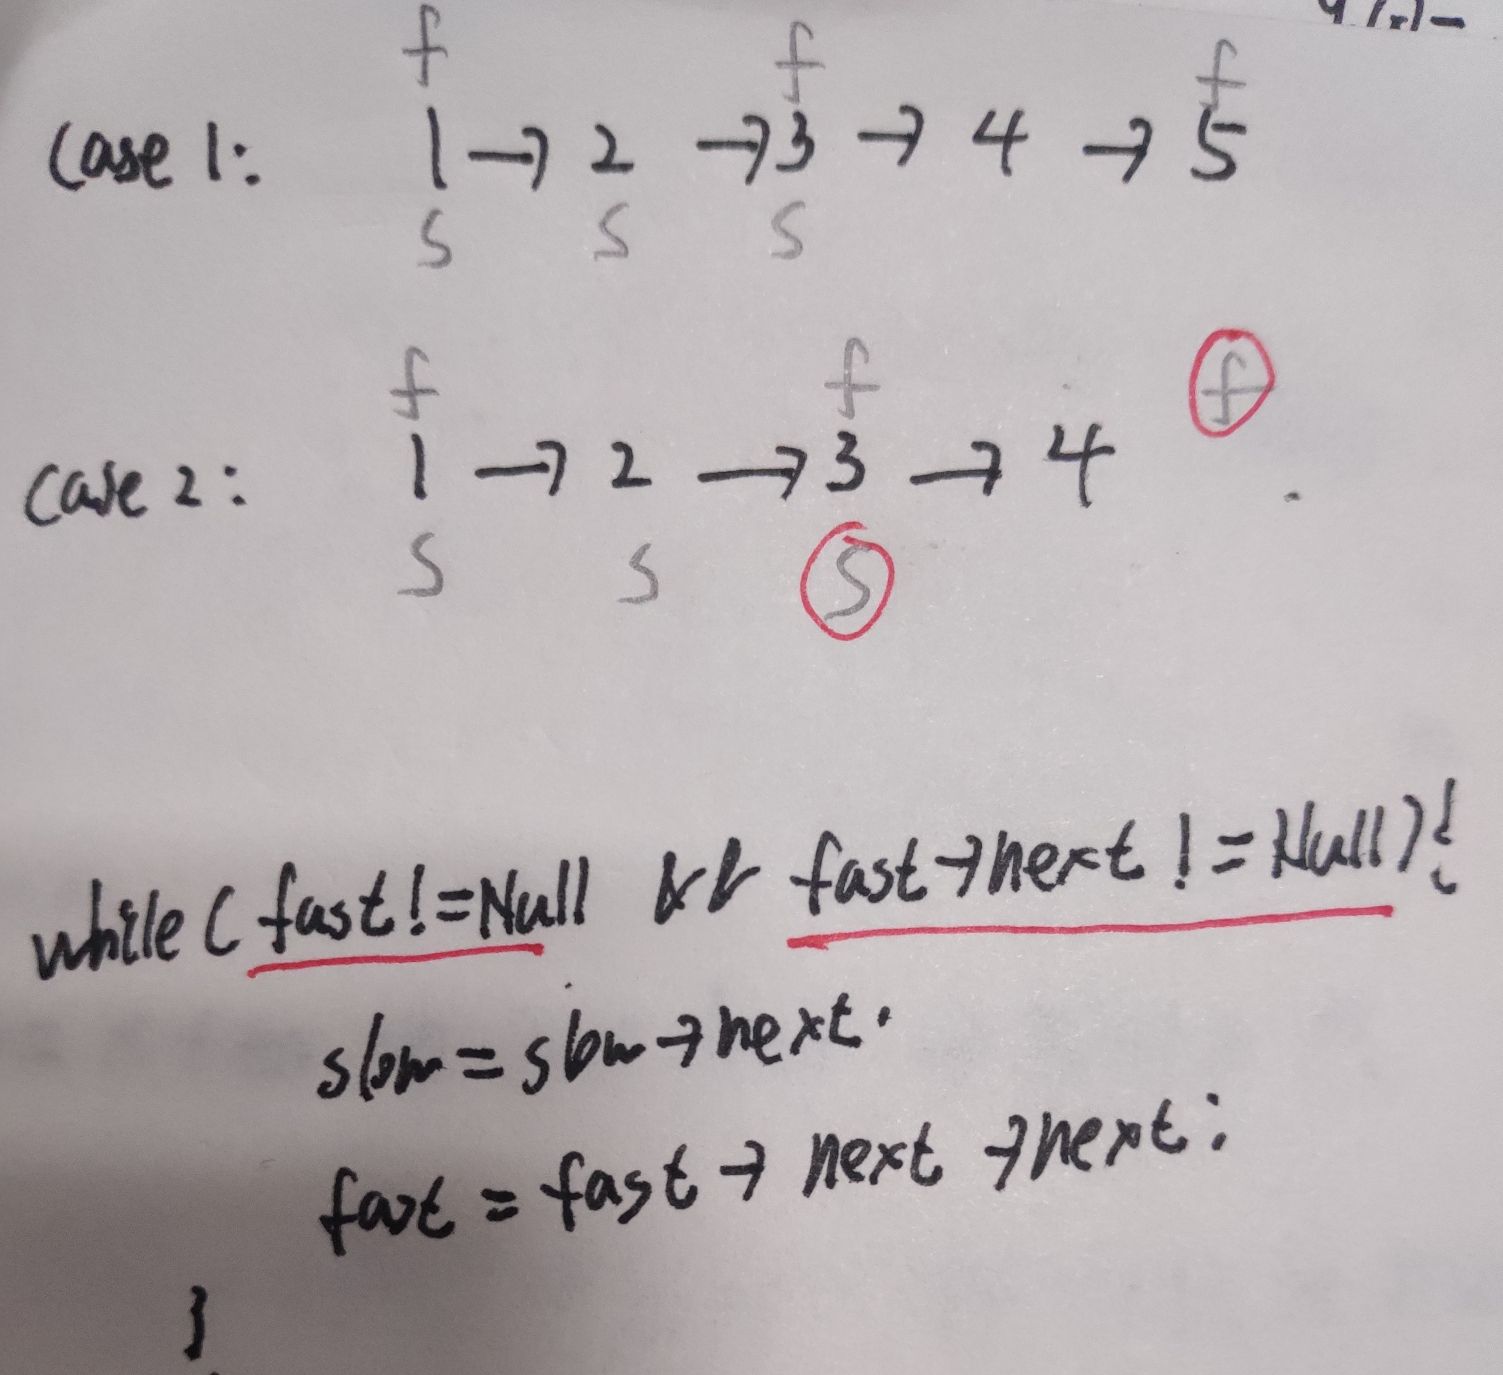 f f f
Case 1: 1 → 2 → 3 → 4 → 5
S S S
f f f
Case 2: 1 → 2 → 3 → 4
S S S
while ( fast != Null && fast → next != Null ) {
slow = slow → next.
fast = fast → next → next;
}